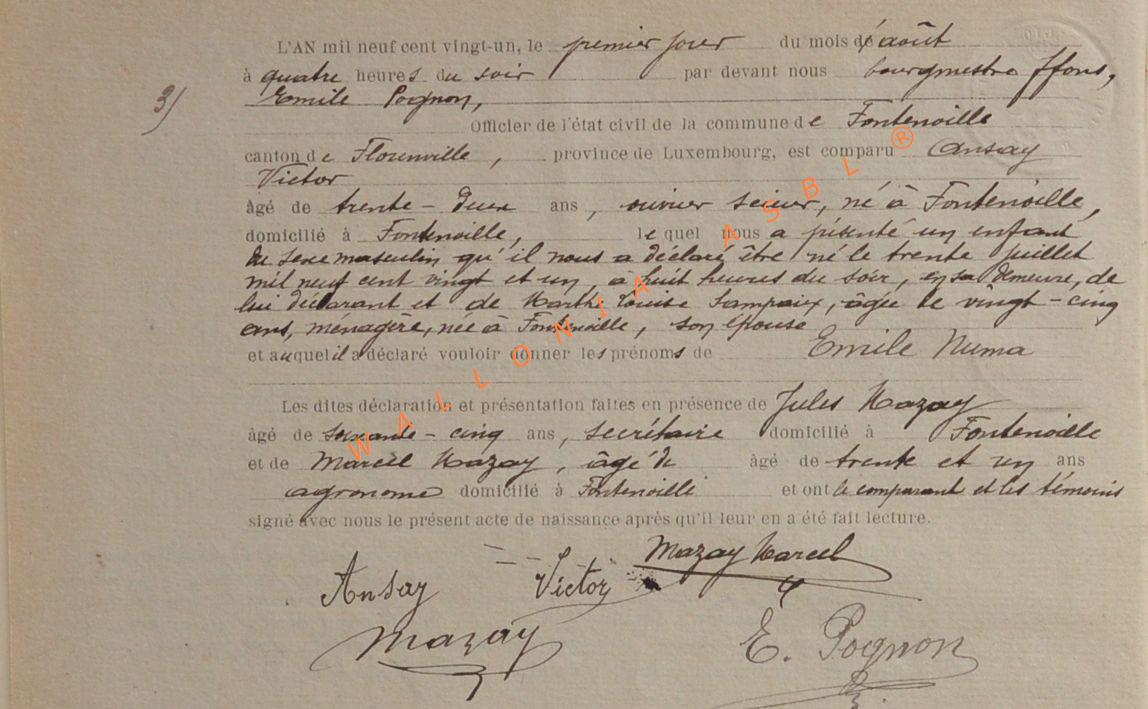 L'AN mil neuf cent vingt-un, le premier jour du mois d'août
à quatre heures du soir par devant nous bourgmestre ffons,
3) Emile Pognon,
Officier de l'état civil de la commune de Fontenoille
canton de Florenville, province de Luxembourg, est comparu Ansay
Victor
âgé de trente-deux ans, ouvrier scieur, né à Fontenoille,
domicilié à Fontenoille, lequel nous a présenté un enfant
du sexe masculin qu'il nous a déclaré être né le trente juillet
mil neuf cent vingt et un, à huit heures du soir, en sa demeure, de
lui déclarant et de Marthe Louise Lampaix, âgée de vingt-cinq
ans, ménagère, née à Fontenoille, son épouse
et auquel il a déclaré vouloir donner les prénoms de Emile Numa
Les dites déclaration et présentation faites en présence de Jules Mazay
âgé de soixante-cinq ans, secrétaire domicilié à Fontenoille
et de Marcel Mazay, âgé de âgé de trente et un ans
agronome domicilié à Fontenoille et ont le comparant et les témoins
signé avec nous le présent acte de naissance après qu'il leur en a été fait lecture.
Mazay Marcel
Ansay Victor
Mazay
E. Pognon
WALLONIA ASBL ®